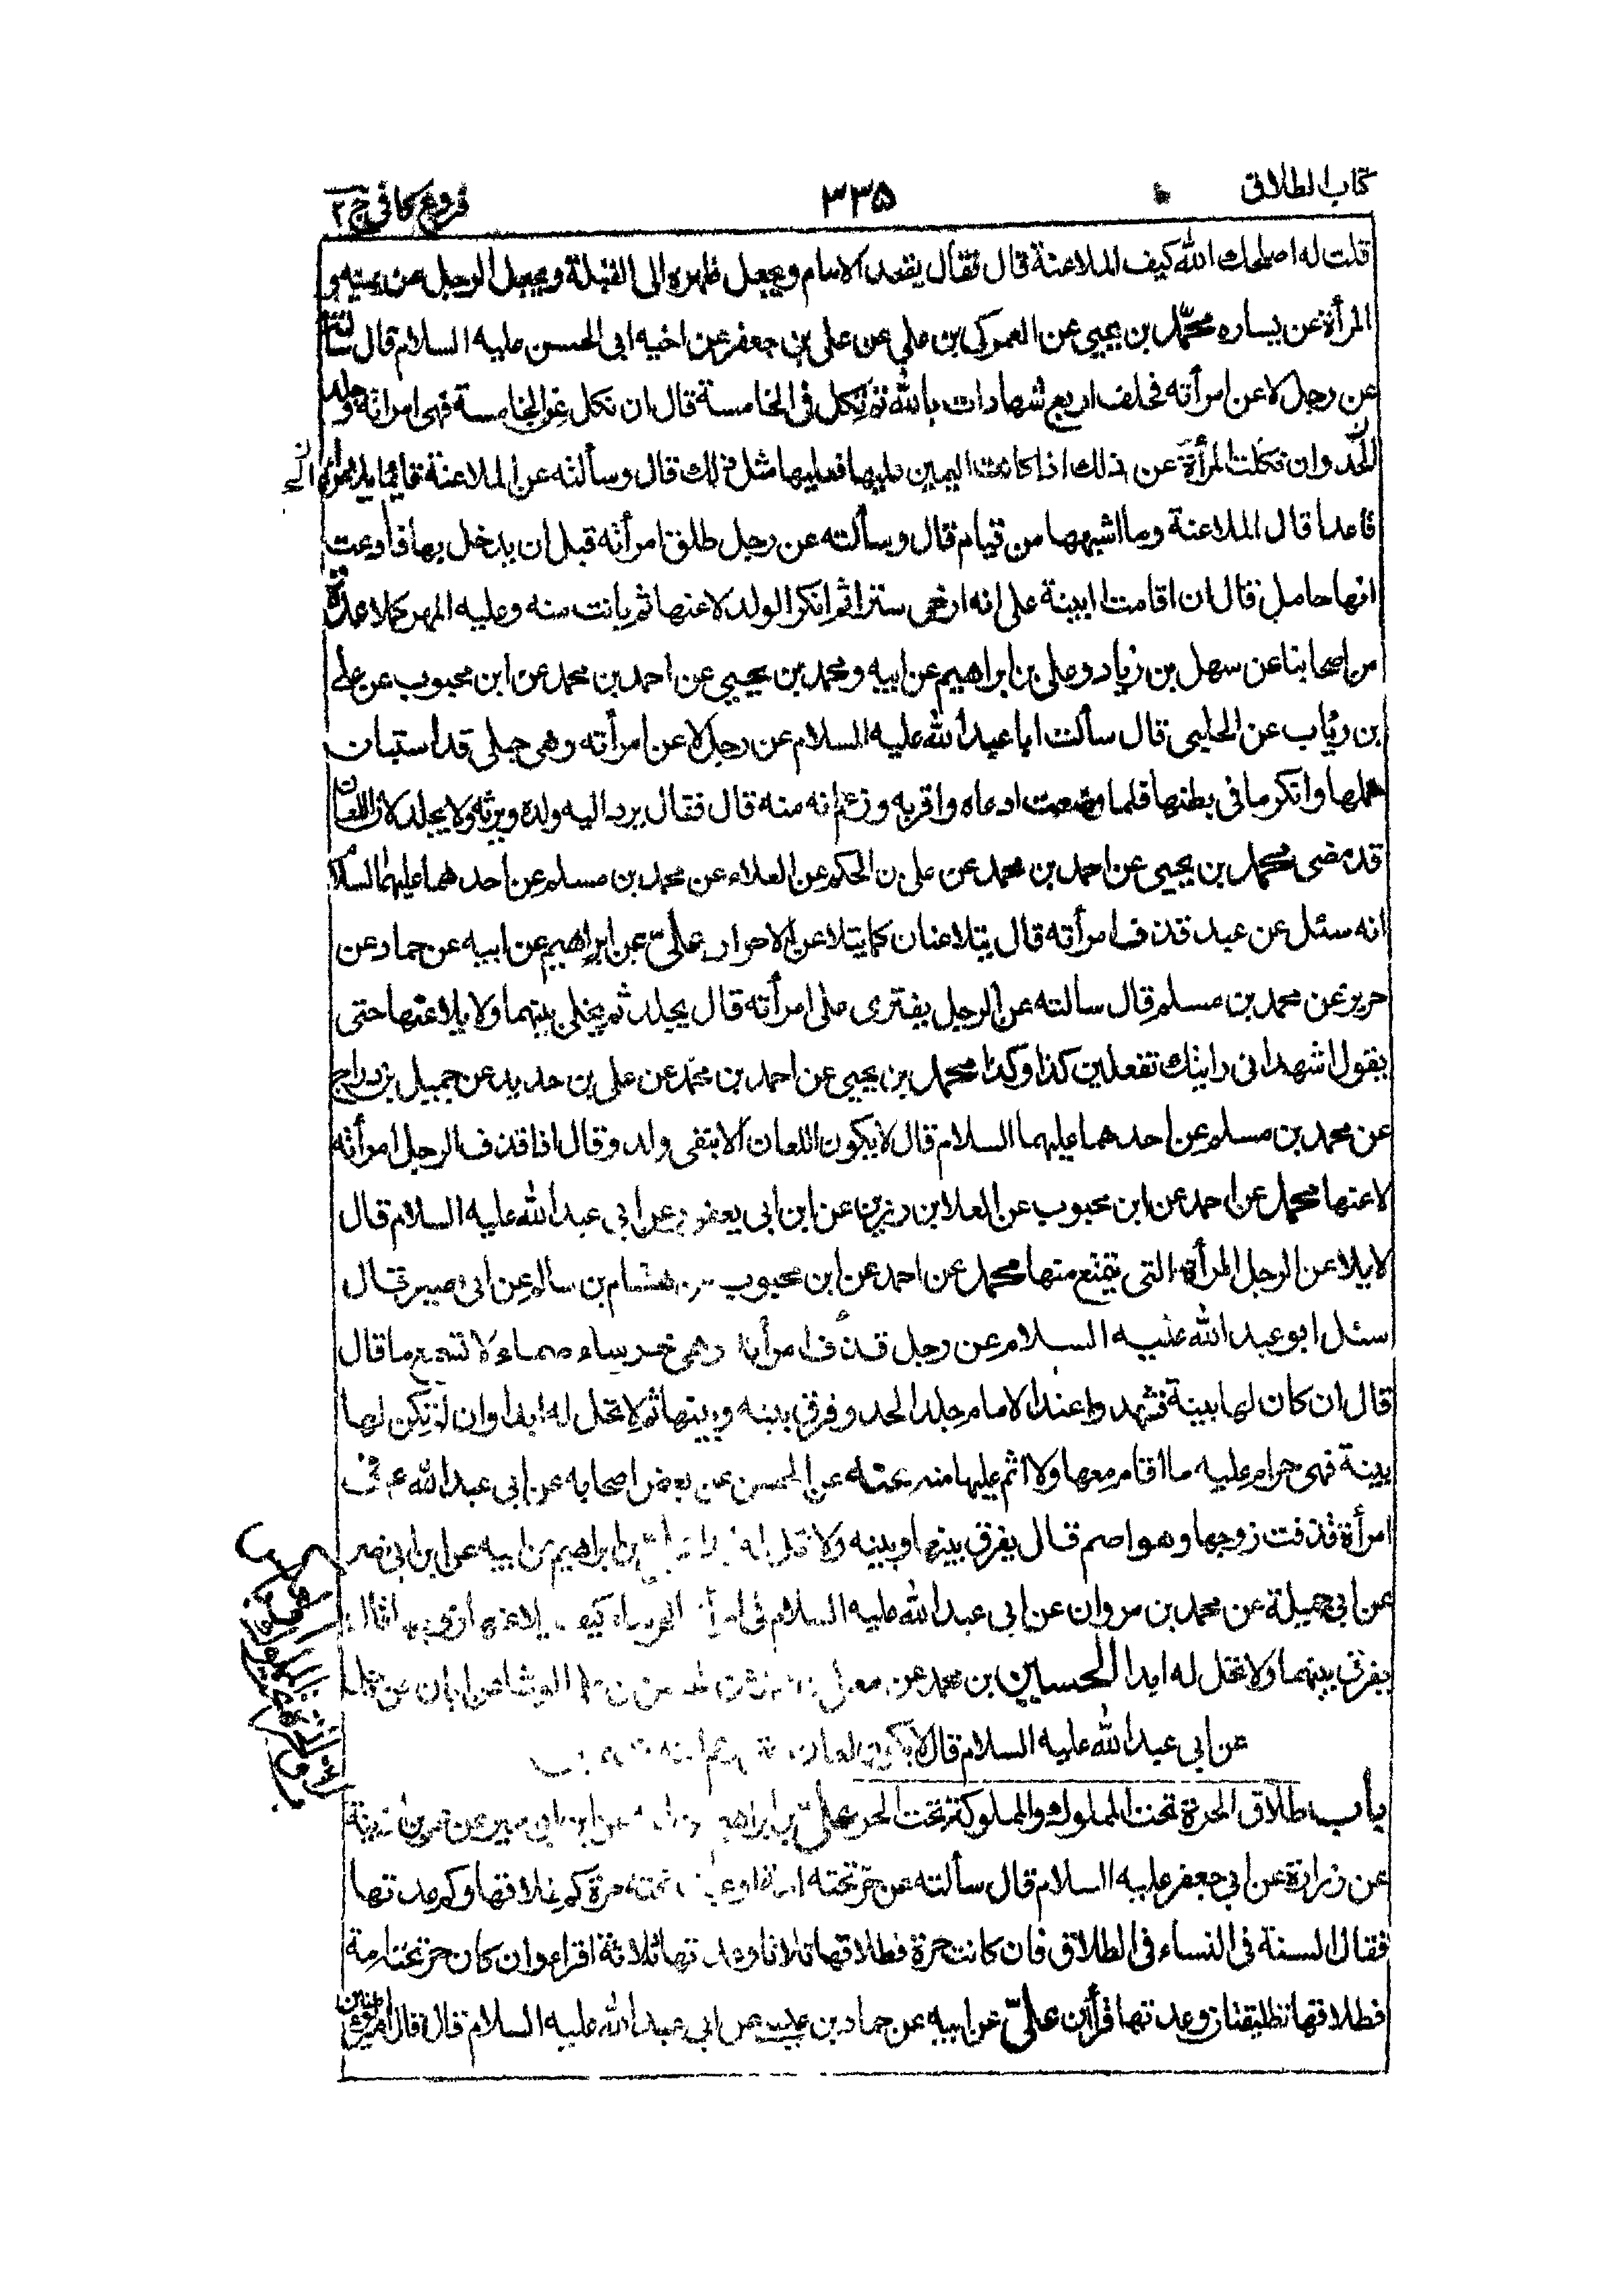 كتاب الطلاق ٣٣٥ فروع كافى ج ٢
قلت له اصلحك الله كيف الملاعنة قال فقال يقعد الامام ويجعل ظهره الى القبلة ويجعل الرجل عن يمينه و
المرأة عن يساره محمّد بن يحيى عن العمركى بن على عن على بن جعفر عن اخيه ابى الحسن عليه السلام قال سألته
عن رجل لاعن امرأته فحلف اربع شهادات بالله ثم نكل فى الخامسة قال ان نكل عن الخامسة فهى امرأته وجلد
الحدّ وان نكلت المرأة عن ذلك اذا كانت اليمين عليها فعليها مثل ذلك قال وسألته عن الملاعنة قائما يلاعن ام
قاعدا قال الملاعنة وما اشبهها من قيام قال وسألته عن رجل طلق امرأته قبل ان يدخل بها فادعت
انها حامل قال ان اقامت البينة على انه ارخى سترا ثم انكر الولد لاعنها ثم بانت منه وعليه المهر كملا عدّة
من اصحابنا عن سهل بن زياد وعلى بن ابراهيم عن ابيه ومحمد بن يحيى عن احمد بن محمد عن ابن محبوب عن على
بن رئاب عن الحلبى قال سألت ابا عبد الله عليه السلام عن رجل لاعن امرأته وهى حبلى قد استبان
حملها وانكر ما فى بطنها فلما وضعت ادعاه واقر به وزعم انه منه قال فقال يرد اليه ولده ويرثه ولا يجلد لان اللعان
قد مضى محمد بن يحيى عن احمد بن محمد عن على بن الحكم عن العلاء عن محمد بن مسلم عن احدهما عليهما السلام
انه سئل عن عبد قذف امرأته قال يتلاعنان كما يتلاعن الاحرار علىّ بن ابراهيم عن ابيه عن حماد عن
حريز عن محمد بن مسلم قال سالته عن الرجل يفترى على امرأته قال يجلد ثم يخلى بينهما ولا يلاعنها حتى
يقول اشهد انى رايتك تفعلين كذا وكذا محمد بن يحيى عن احمد بن محمد عن على بن حديد عن جميل بن دراج
عن محمد بن مسلم عن احدهما عليهما السلام قال لا يكون اللعان الا بنفى ولد وقال اذا قذف الرجل امرأته
لاعنها محمد عن احمد عن ابن محبوب عن العلا بن رزين عن ابن ابى يعفور عن ابى عبد الله عليه السلام قال
لا يلاعن الرجل المرأة التى يتمتع منها محمد عن احمد عن ابن محبوب عن هشام بن سالم عن ابى بصير قال
سئل ابو عبد الله عليه السلام عن رجل قذف امرأته وهى خرساء صماء لا تسمع ما قال
قال ان كان لها بينة فشهدوا عند الامام جلد الحد وفرق بينه وبينها ثم لا تحل له ابدا وان لم تكن لها
بينة فهى حرام عليه ما اقام معها ولا اثم عليها منه عنه عن الحسن عن بعض اصحابه عن ابى عبد الله ع فى
امرأة قذفت زوجها وهو اصم قال يفرق بينها وبينه ولا تحل له ابدا علىّ بن ابراهيم عن ابيه عن ابن ابى نصر
عن ابى جميلة عن محمد بن مروان عن ابى عبد الله عليه السلام فى المرأة الخرساء كيف يلاعنها زوجها قال
يفرق بينهما ولا تحل له ابدا الحسين بن محمد عن معلى بن محمد عن الحسن بن على الوشا عن ابان عن
عن ابى عبد الله عليه السلام قال لا يكون اللعان
باب طلاق الحرة تحت المملوك والمملوكة تحت الحر علىّ بن ابراهيم عن ابيه عن ابن ابى عمير عن عمر بن اذينة
عن زرارة عن ابى جعفر عليه السلام قال سألته عن حرّ تحته امة او عبد تحته حرة كم طلاقها وكم عدتها
فقال السنة فى النساء فى الطلاق فان كانت حرة فطلاقها ثلاثا وعدتها ثلاثة اقراء وان كان حر تحته امة
فطلاقها تطليقتان وعدتها قرأين علىّ عن ابيه عن حماد بن عيسى عن ابى عبد الله عليه السلام قال قال امير المؤمنين